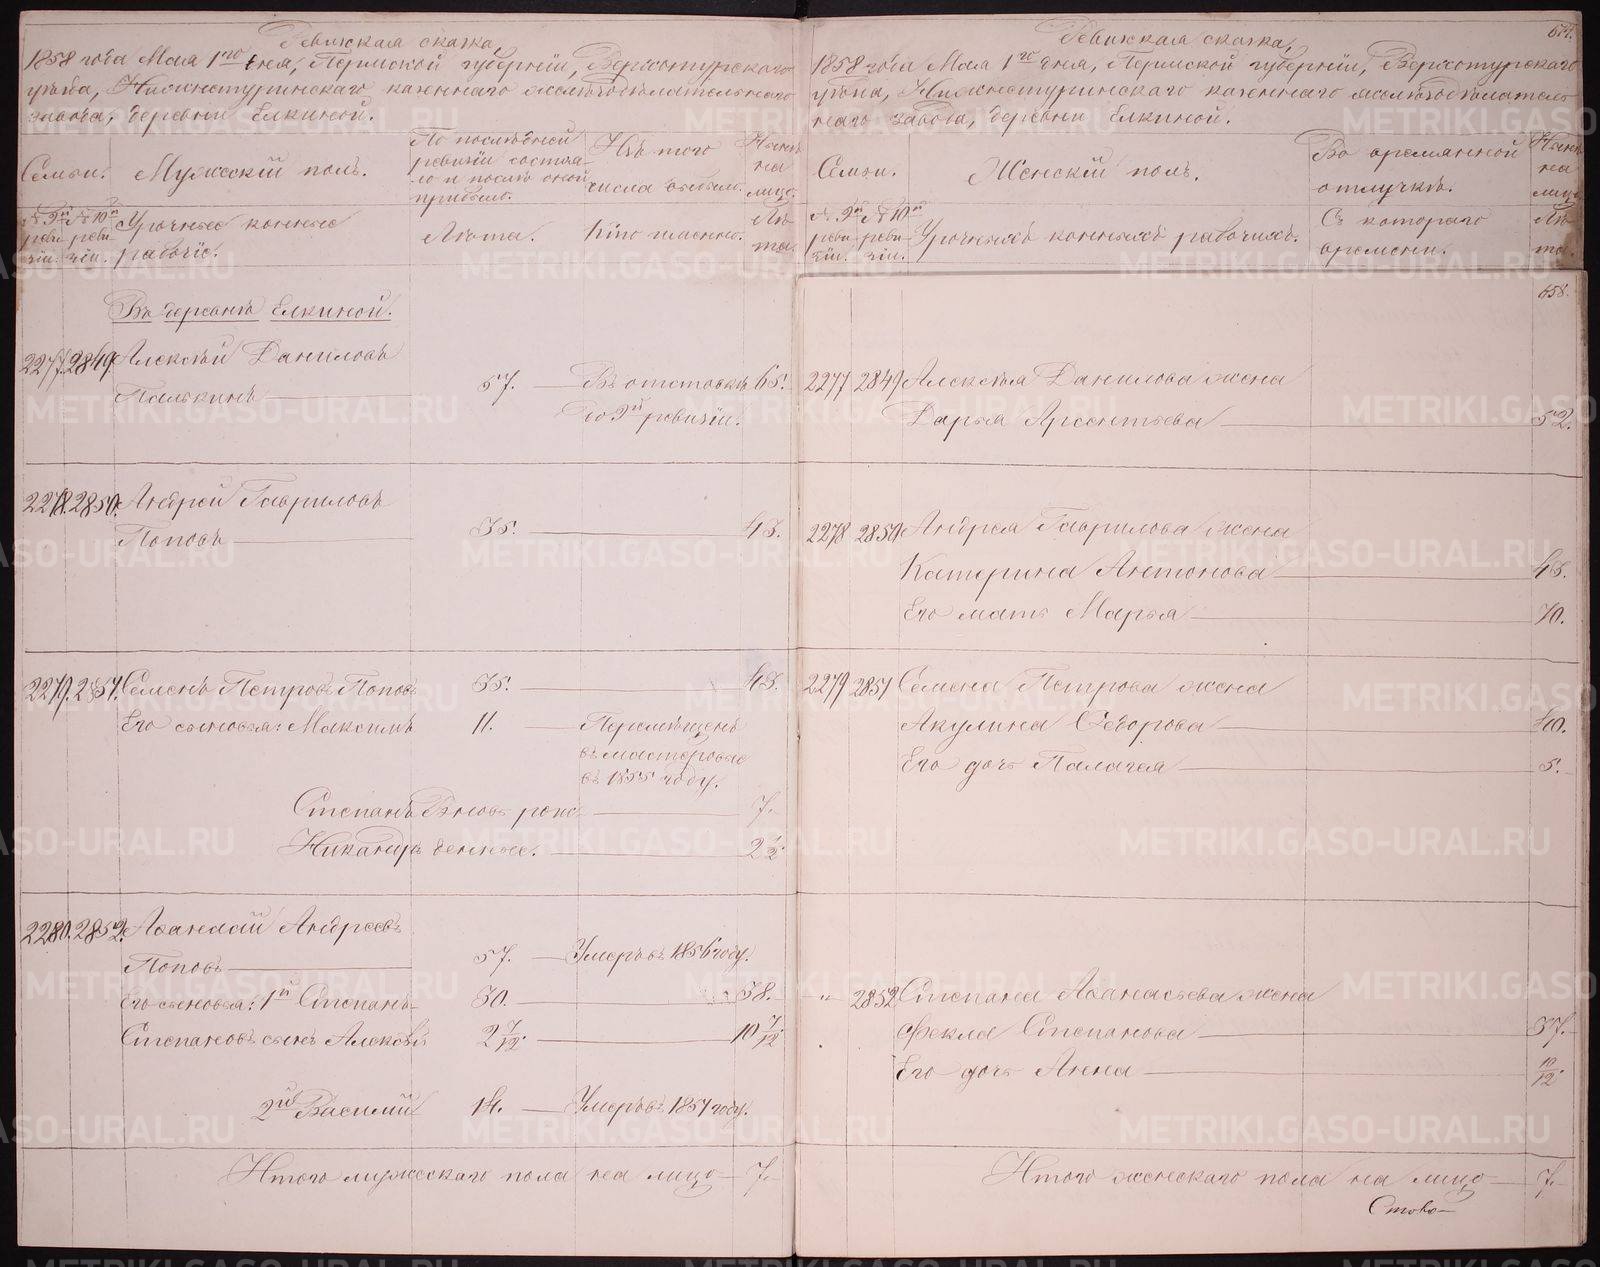 Ревижская сказка,
1858 года Мая 1го дня, Пермской губерніи, Верхотурскаго
уѣзда, Нижнетуринскаго казеннаго желѣзодѣлательнаго
завода, деревни Елкиной.
Семьи.
Мужескій полъ.
По послѣдней
ревизіи состоя-
ло и послѣ оной
прибыло.
Изъ того
числа выбыло.
Нынѣ
на
лицо.
№ 9й
реви-
зіи.
№ 10й
реви-
зіи.
Урочные конные
рабочіе.
Лѣта.
Кто именно.
Лѣ
та.
Въ деревнѣ Елкиной.
2277. 2849. Алексѣй Даниловъ
Палькинъ 57. Въ отставкѣ 65.
до 9й ревизіи.
2278. 2850. Андрей Гавриловъ
Поповъ 35. 43.
2279. 2851. Семенъ Петровъ Поповъ 35. 43.
Его сыновья: Максимъ 11. Перемѣщенъ
въ мастеровые
въ 1855 году.
Степанъ Вновь рож 7.
Никандръ денные. 2 1/2
2280. 2852. Афанасій Андреевъ
Поповъ 57. Умеръ въ 1856 году.
Его сыновья: 1й Степанъ 30. 38.
Степановъ сынъ Алексѣй 2 7/12. 10 7/12
2й Василій 14. Умеръ въ 1851 году.
Итого мужескаго пола на лицо 7.
657.
Ревижская сказка,
1858 года Мая 1го дня, Пермской губерніи, Верхотурскаго
уѣзда, Нижнетуринскаго казеннаго желѣзодѣлатель
наго завода, деревни Елкиной.
Семьи.
Женскій полъ.
Во временной
отлучкѣ.
Нынѣ
на
лицо
№ 9й
реви-
зіи.
№ 10й
реви-
зіи.
Урочныхъ конныхъ рабочихъ.
Съ котораго
времени.
Лѣ
та.
658.
2277 2849 Алексѣя Данилова жена
Дарья Арсентьева 52.
2278 2850 Андрея Гаврилова жена
Катерина Антонова 43.
Его мать Марья 70.
2279 2851 Семена Петрова жена
Акулина Федорова 40.
Его дочь Палагея 5.
" 2852 Степана Афанасьева жена
Фекла Степанова 37.
Его дочь Анна 10/12.
Итого женскаго пола на лицо 7.
METRIKI.GASO-URAL.RU